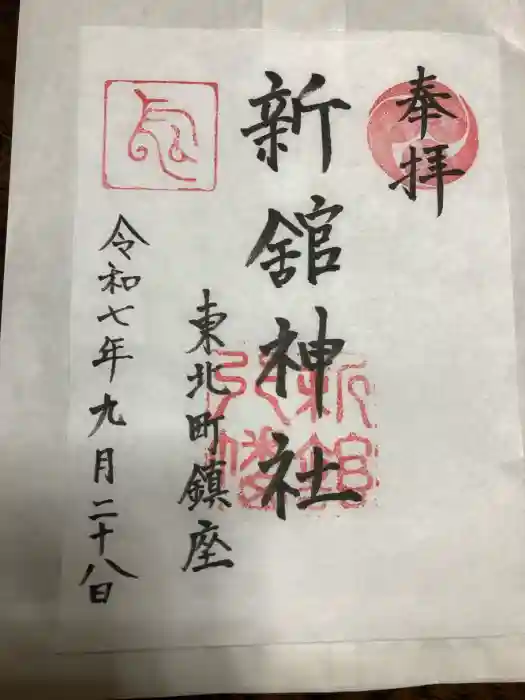 奉拝
新舘神社
東北町鎮座
令和七年九月二十八日
新舘
八幡